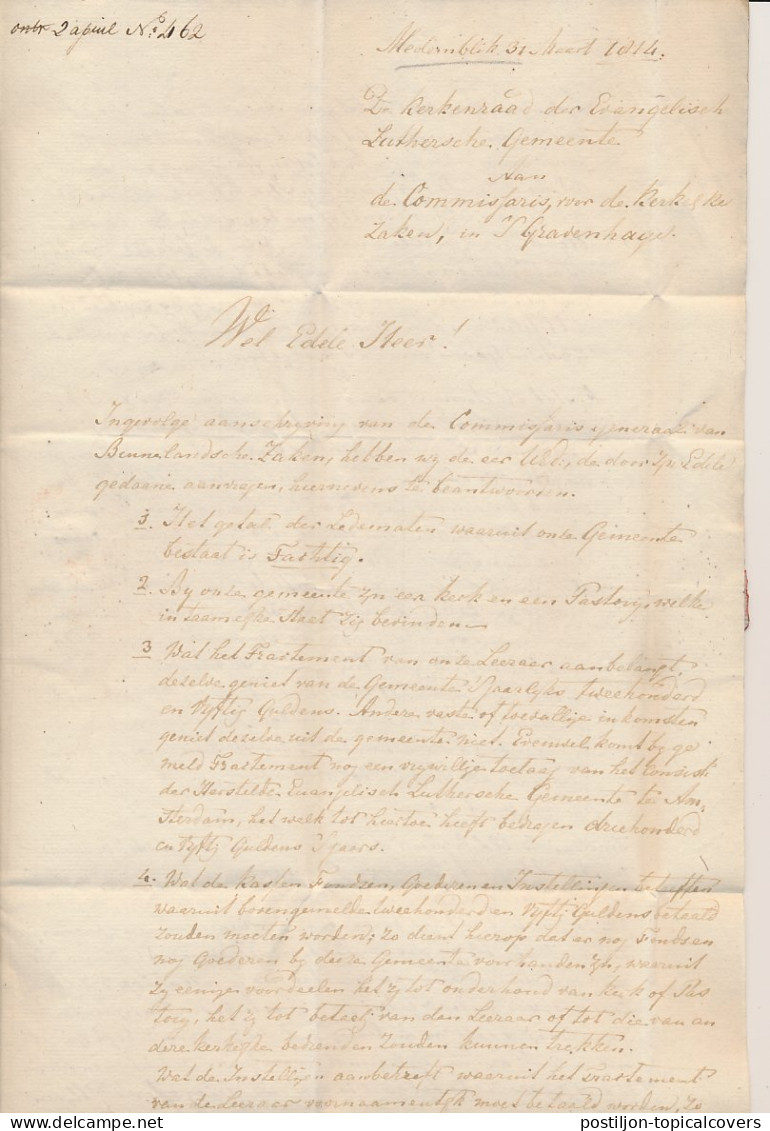 ontv 2 april No. 462
Medemblik 31 Maart 1814.
De Kerkenraad der Evangelisch
Luthersche Gemeente
Aan
de Commissaris, voor de Kerkelke
Zaken, in S Gravenhage.
Wel Edele Heer!
Ingevolge aanschryving van de Commissaris generaal van
Binnelandsche Zaken, hebben wy de eer UEd:, de door Zyn Edele
gedaene aanvragen, hiernevens te beantwoorden.
1. Het getal der Ledematen waaruit onze Gemeente
bestaat is Tachtig.
2. By onze gemeente zyn een kerk en een Pastory, welke
in taamelke Staat zig bevinden.
3 Wat het Tractement van onze Leeraar aanbelangt,
dezelve geniet van de Gemeente Jaarlyks tweehonderd
en Vyftig Guldens. Andere vaste of toevallige inkomsten
geniet dezelve uit de gemeente niet. Evenwel komt by ge
meld Tractement nog een vrywillige toelaag van het Consist:
der Herstelde Evangelisch Luthersche Gemeente te Am,
sterdam, het welk tot hiertoe heeft bedragen driehonderd
en Vyftig Guldens Sjaars.
4. Wat de Kasten Fondzen, Goederen en Instellingen betreffen
waaruit bovengemelde tweehonderd en Vyftig Guldens betaald
zouden moeten worden; zo dient hierop dat er nog Fondsen
nog Goederen by deeze Gemeente voorhanden zyn, waaruit
zy eenige voordeelen het zy tot onderhoud van Kerk of Pas
tory, het zy tot betaling van den Leeraar of tot die van an
dere kerkelyke bedienden zouden kunnen trekken.
Wat de Instellingen aanbetreft waaruit het Tractement
van de Leeraar voornaamentlyk moet betaald worden, zo
postiljon-topicalcovers